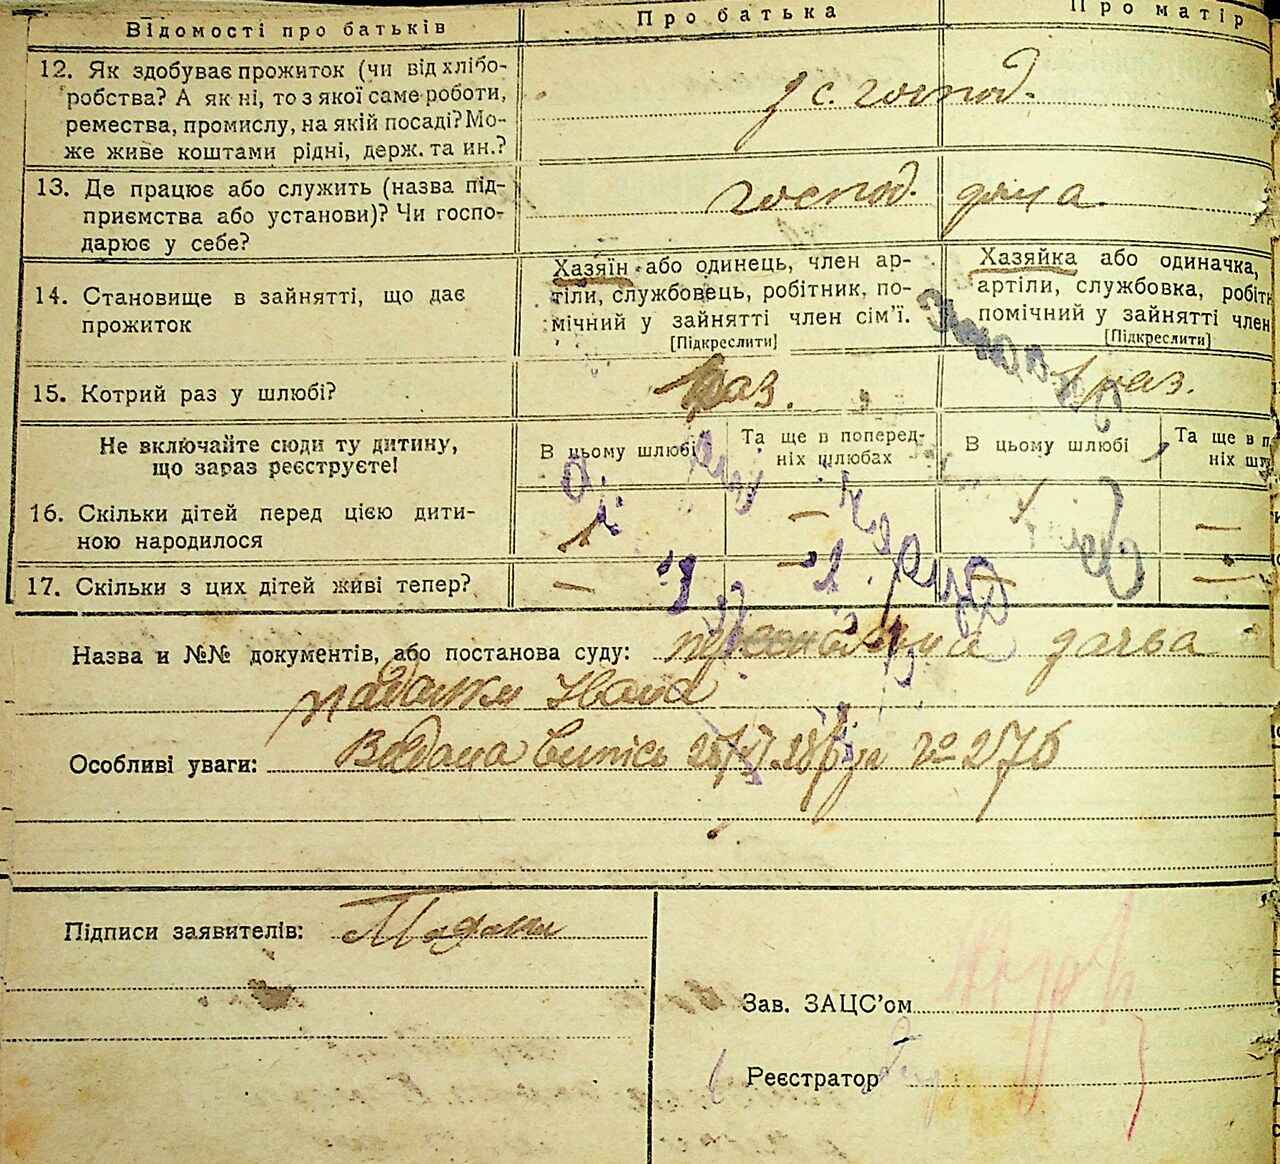 Відомості про батьків
Про батька
Про матір
12. Як здобуває прожиток (чи від хлібо-
робства? А як ні, то з якої саме роботи,
ремества, промислу, на якій посаді? Мо-
же живе коштами рідні, держ. та ин.?
с. господ.
13. Де працює або служить (назва під-
приємства або установи)? Чи госпо-
дарює у себе?
господ. дома.
14. Становище в зайнятті, що дає
прожиток
Хазяїн або одинець, член ар-
тіли, службовець, робітник, по-
мічний у зайнятті член сім’ї.
[Підкреслити]
Хазяйка або одиначка,
артіли, службовка, робітн
помічний у зайнятті член
[Підкреслити]
15. Котрий раз у шлюбі?
1 раз.
1 раз.
Не включайте сюди ту дитину,
що зараз реєструєте!
В цьому шлюбі
Та ще в поперед-
ніх шлюбах
В цьому шлюбі
Та ще в п
ніх шл
16. Скільки дітей перед цією дити-
ною народилося
1
—
1
—
17. Скільки з цих дітей живі тепер?
—
—
—
—
Назва и №№ документів, або постанова суду:
Особливі уваги: Видана випись №276
Підписи заявителів:
Зав. ЗАЦС’ом
Реєстратор